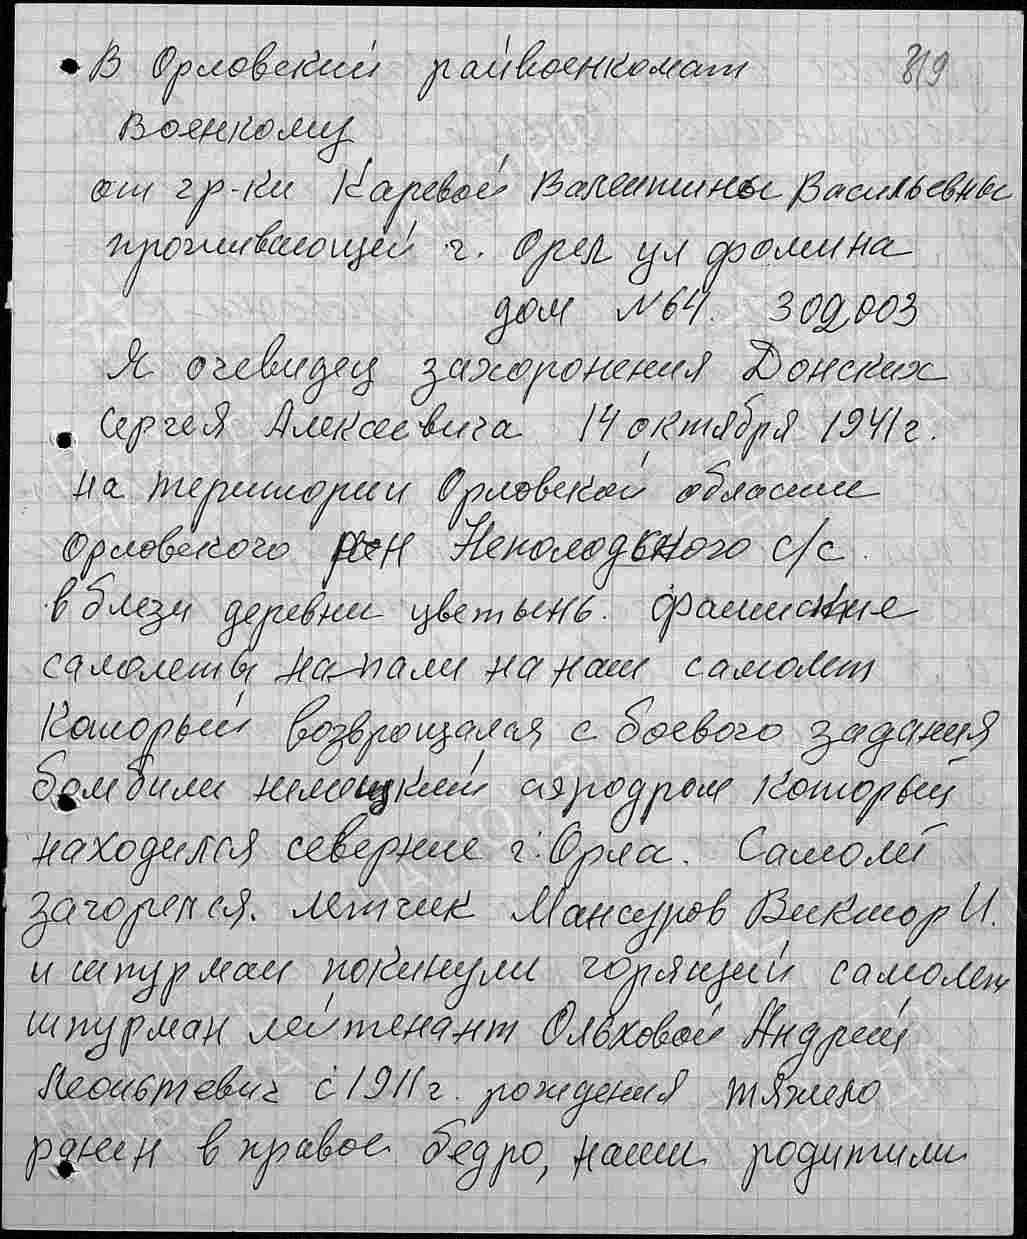 В Орловский райвоенкомат 819
Военкому
от гр-ки Каревой Валентины Васильевны
проживающей г. Орел ул фомина
дом №64. 302003
Я очевидец захоронения Донских
Сергея Алексеевича 14 октября 1941г.
на територии Орловской области
Орловского р-н Неполодьного с/с.
в близи деревни цветынь. Фашиские
самолеты напали на наш самолет
Который возвращался с боевого задания
бомбили немецкий аэродром Который
находился севернее г. Орла. Самолет
загорелся. летчик Мансуров Виктор И.
и штурман покинули горящий самолет
штурман лейтенант Ольховой Андрей
с 1911г. рождения тяжело
ранен в правое бедро, наши родители